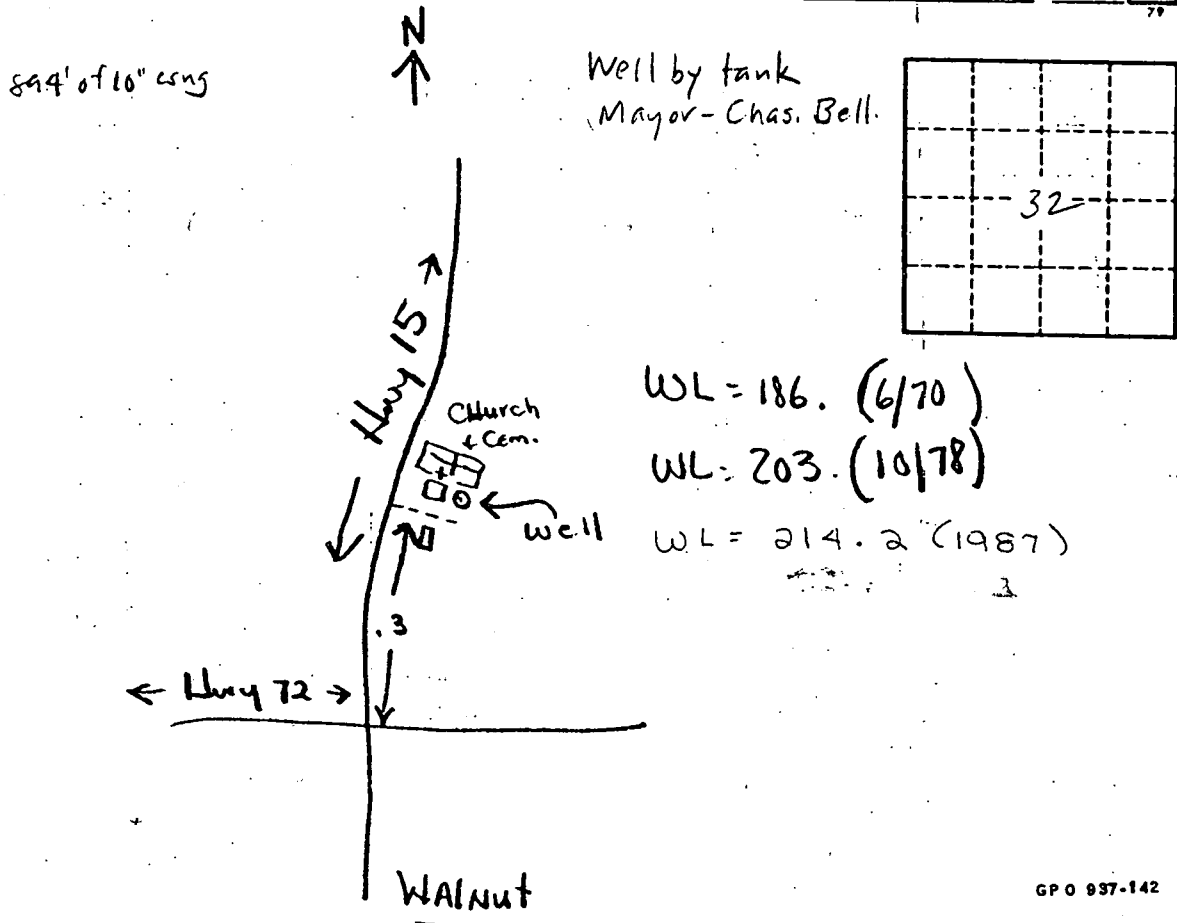 79
N
894' of 10" csng
Well by tank
Mayor - Chas. Bell.
32
Hwy 15
Church
+ Cem.
Well
WL = 186. (6/70)
WL = 203. (10/78)
WL = 214.2 (1987)
.3
Hwy 72
WAlNut
GPO 937-142